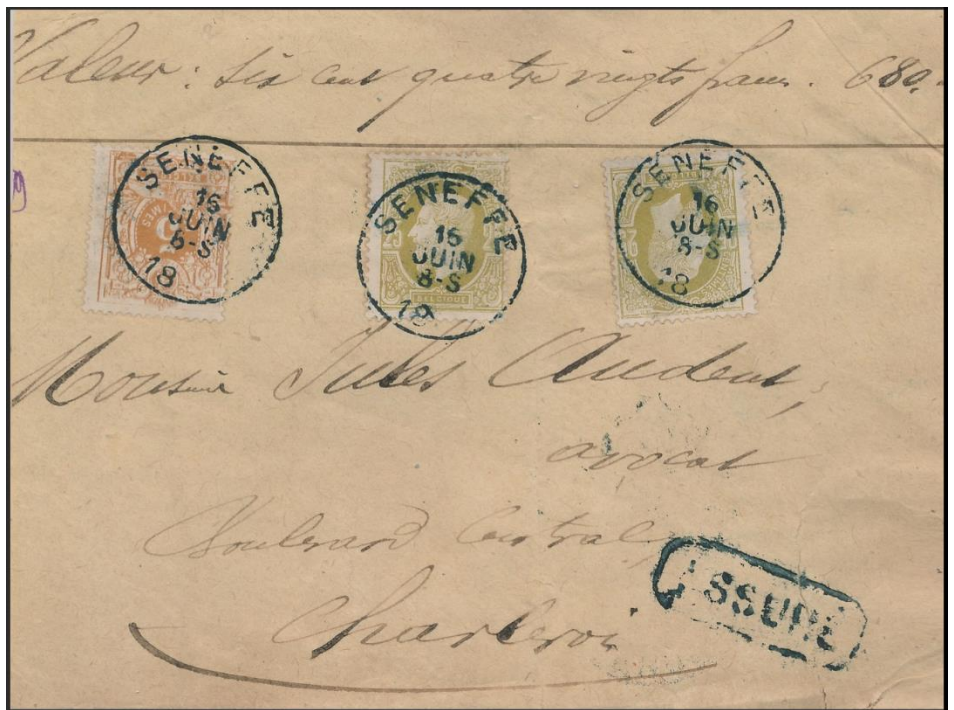 Valeur : six cent quatre vingts francs. 680.
SENEFFE
16
JUIN
8-S
18
SENEFFE
16
JUIN
8-S
18
25
BELGIQUE
SENEFFE
16
JUIN
8-S
18
Monsieur Jules Audent,
avocat
Boulevard Central,
Charleroi
ASSURÉ